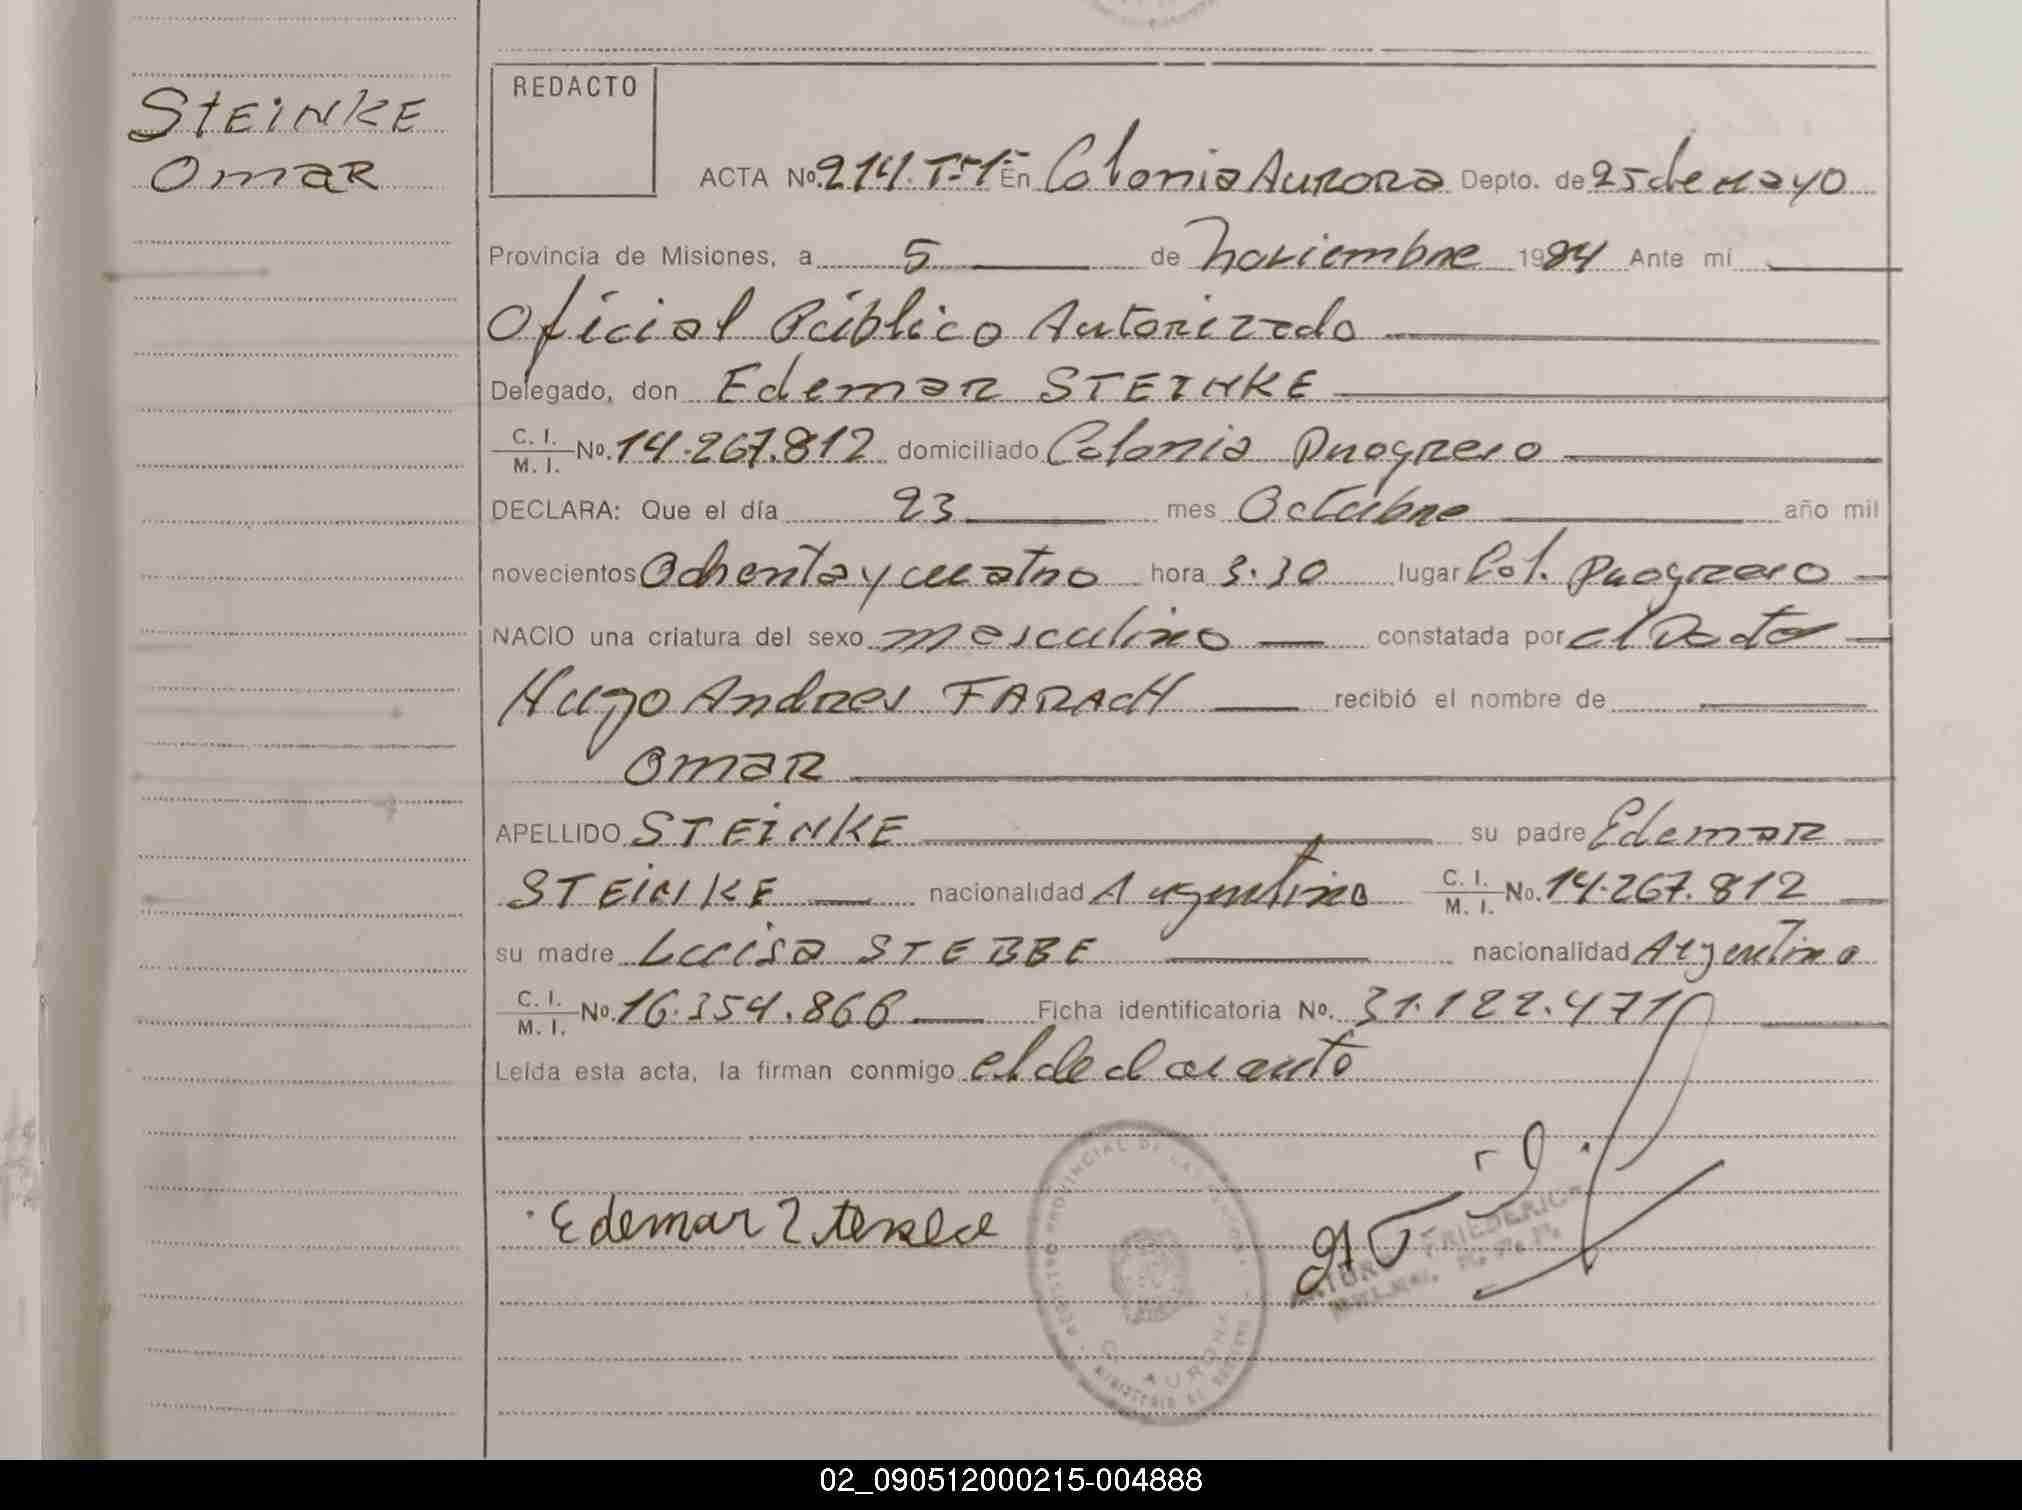 STEINKE
Omar
REDACTO
ACTA No. 214. Tº1º En Colonia Aurora Depto. de 25 de mayo
Provincia de Misiones, a 5 de noviembre 1984 Ante mí
Oficial Público Autorizado
Delegado, don Edemar STEINKE
C. I. / M. I. No. 14.267.812 domiciliado Colonia Progreso
DECLARA: Que el día 23 mes Octubre año mil
novecientos Ochenta y cuatro hora 3.30 lugar Col. Progreso
NACIO una criatura del sexo masculino constatada por el Doctor
Hugo Andres FARACH recibió el nombre de
Omar
APELLIDO STEINKE su padre Edemar
STEINKE nacionalidad Argentino C. I. / M. I. No. 14.267.812
su madre Luisa STEBBE nacionalidad Argentina
C. I. / M. I. No. 16.354.866 Ficha identificatoria No. 31.122.471
Leída esta acta, la firman conmigo el declarante
REGISTRO PROVINCIAL DE LAS PERSONAS
Edemar
FRIEDERICH
C. AURORA
MINISTERIO DE GOBIERNO
02_090512000215-004888